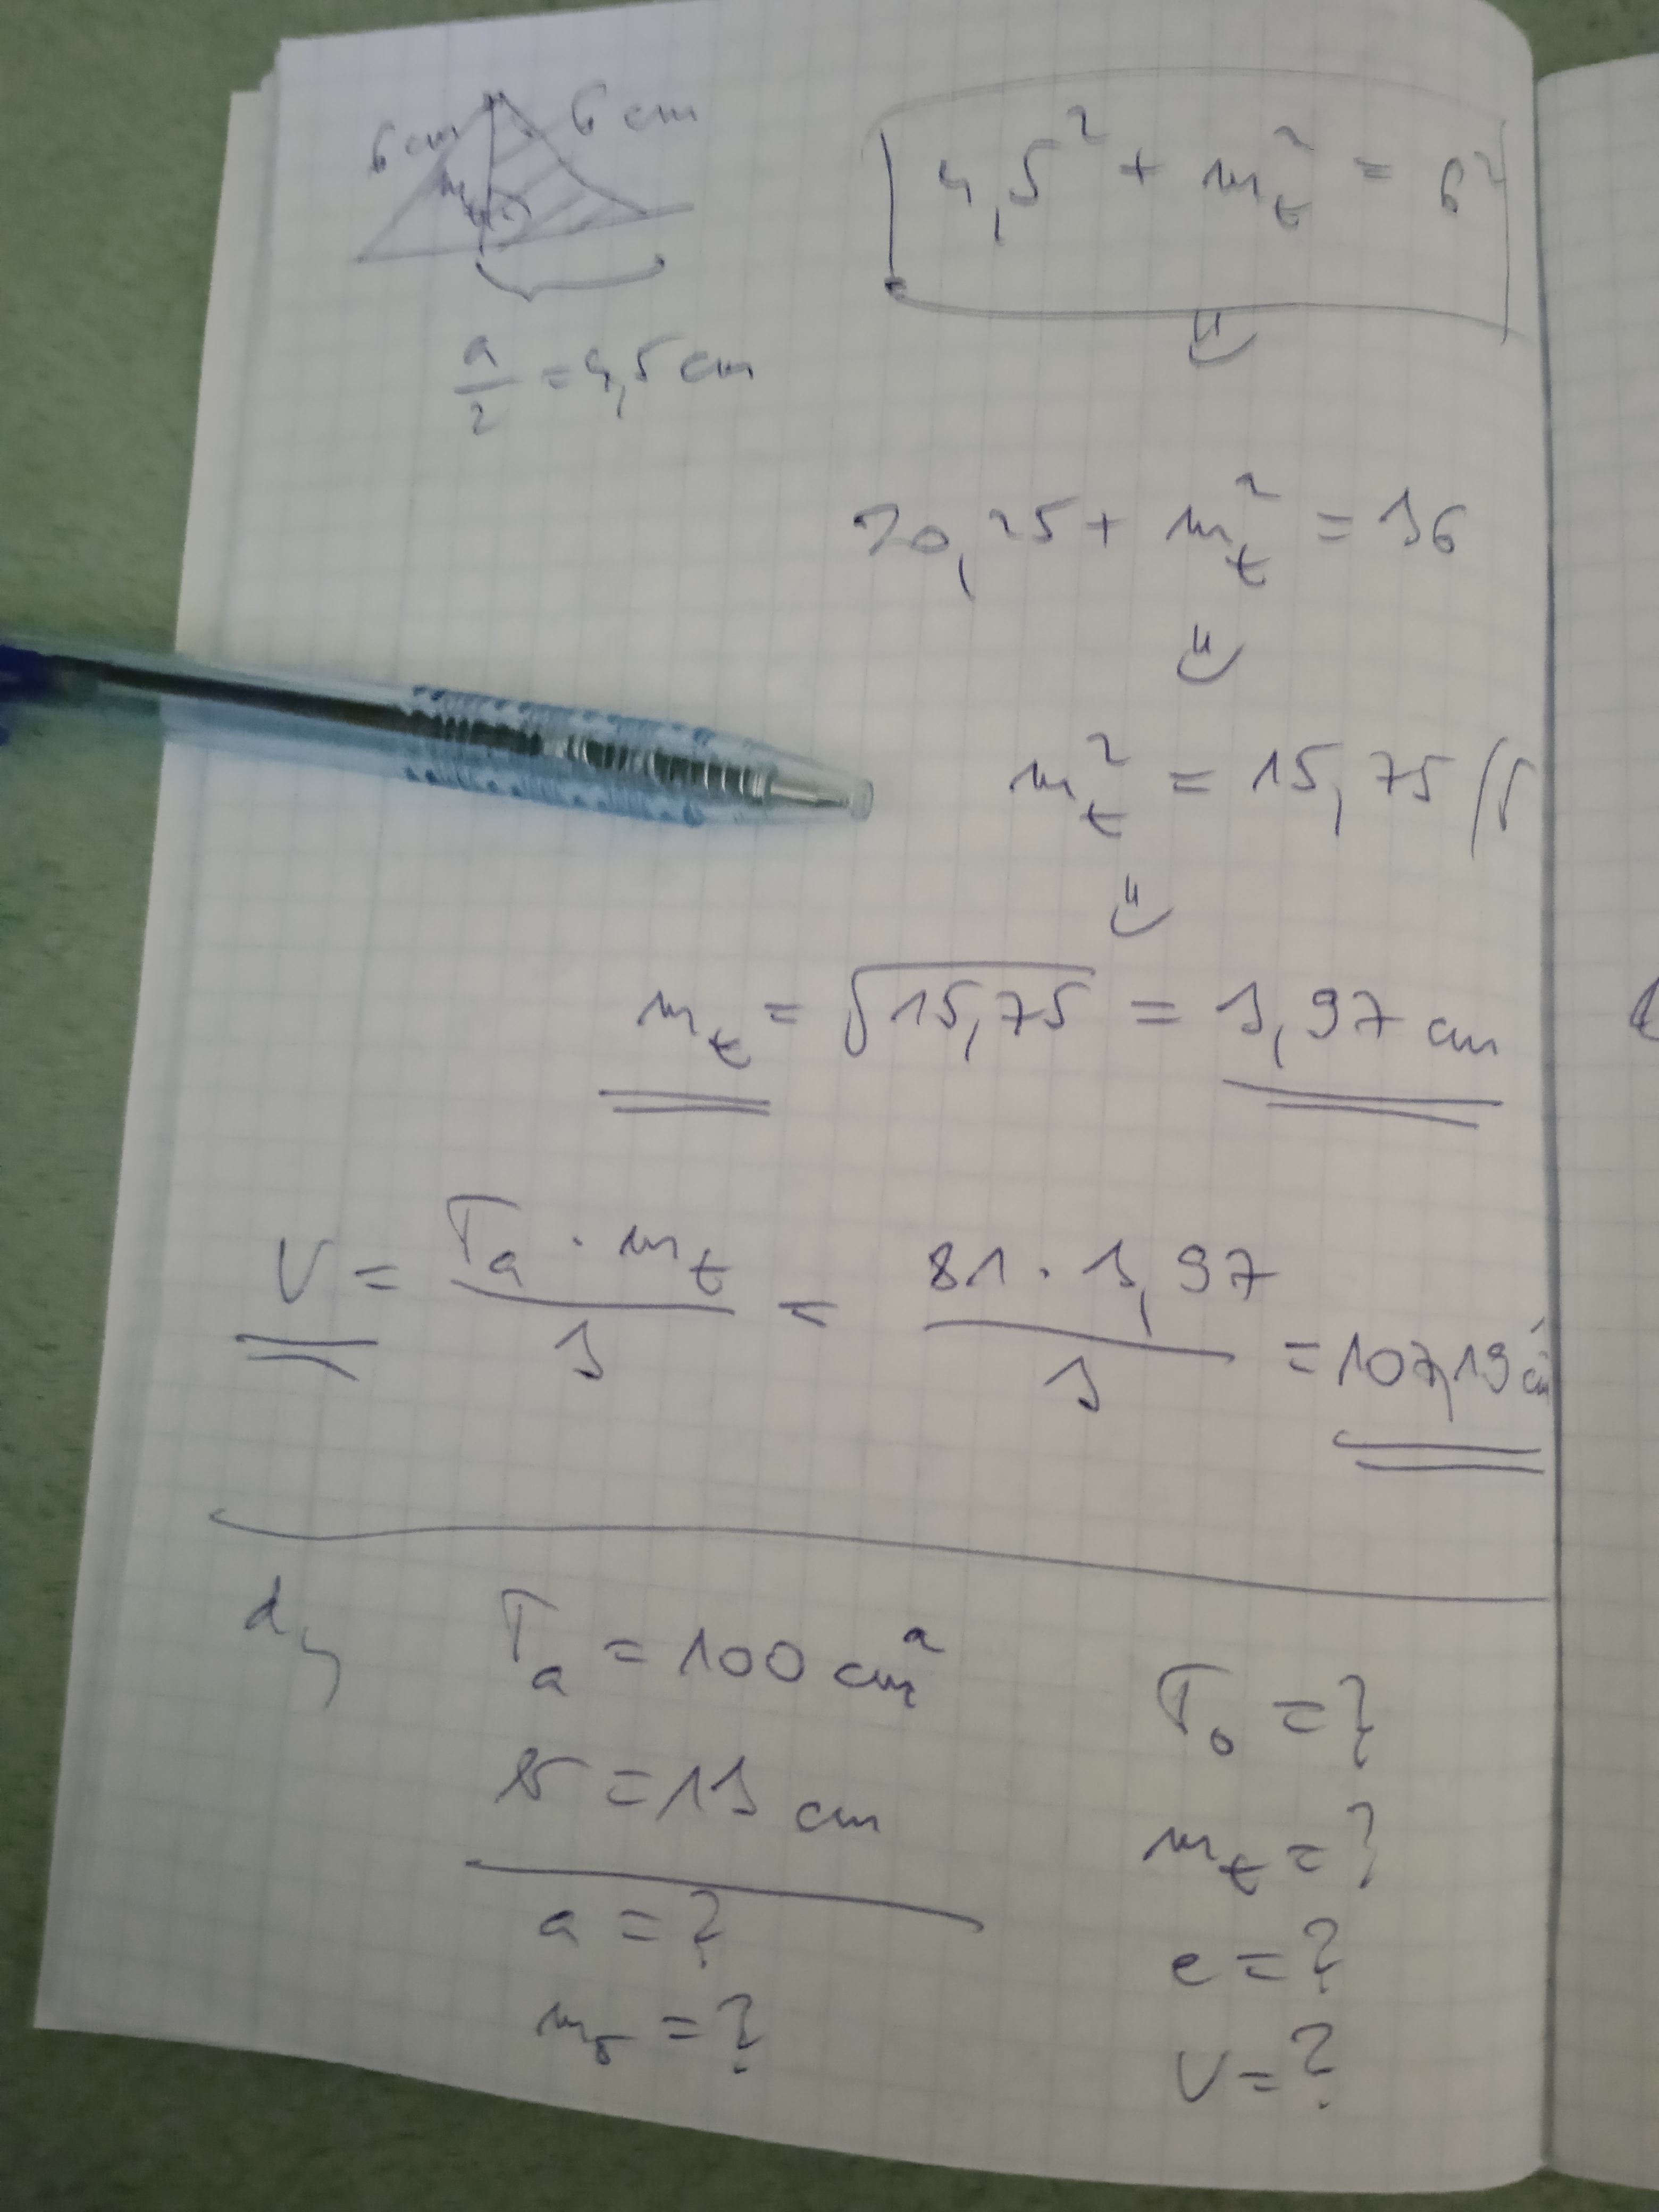 6 cm 6 cm
m_t
a/2 = 4,5 cm
4,5² + m_t² = 6²
20,25 + m_t² = 36
m_t² = 15,75 /√
m_t = √15,75 = 3,97 cm
V = T_a · m_t / 3 = 81 · 3,97 / 3 = 107,19 cm³
d,
T_a = 100 cm²
T_o = ?
= 13 cm
m_t = ?
a = ?
e = ?
m_o = ?
V = ?